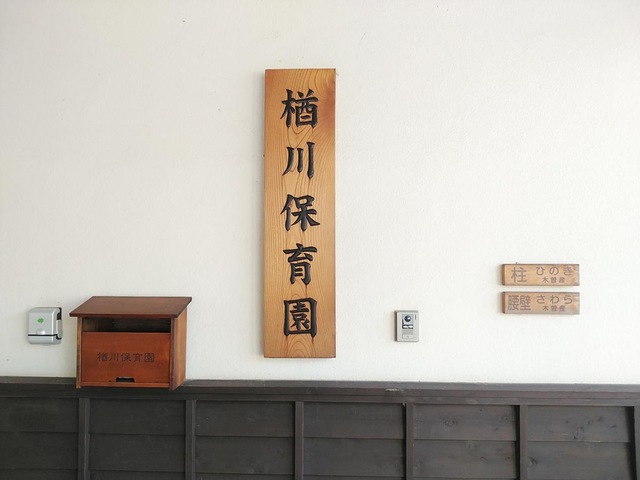 楢川保育園
楢川保育園
柱 ひのき
木曽産
腰壁 さわら
木曽産